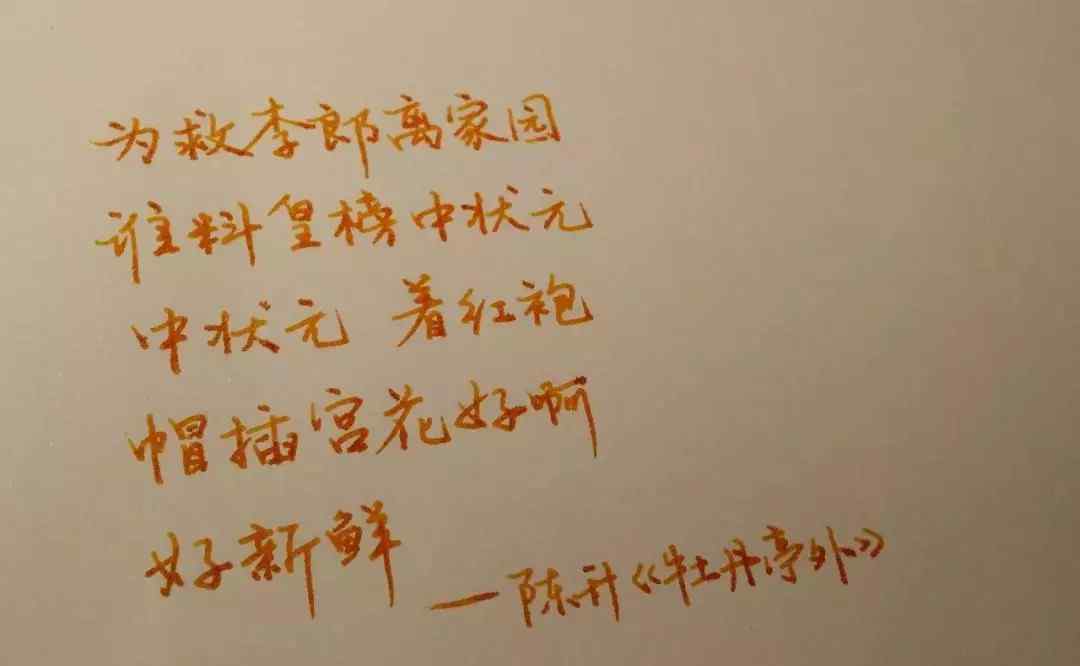 为救李郎离家园
谁料皇榜中状元
中状元 着红袍
帽插宫花好啊
好新鲜
——陈升《牡丹亭外》